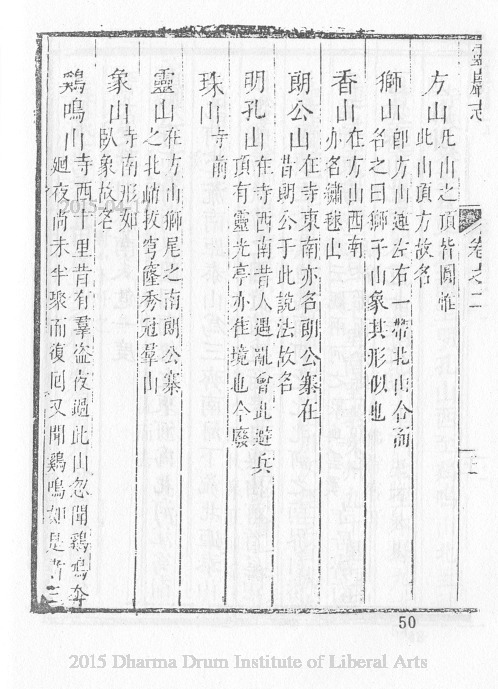 靈巖志
卷之二
方山凡山之頂皆圓惟
此山頂方故名
獅山即方山連左右一帶北山合而
名之曰獅子山象其形似也
香山在方山西南
亦名繡毬山
朗公山在寺東南亦名朗公寨在
昔朗公于此說法故名
明孔山在寺西南昔人遇亂會此避兵
頂有靈光亭亦佳境也今廢
珠山寺前
靈山在方山獅尾之南朗公寨
之北峭拔穹窿秀冠羣山
象山寺南形如
臥象故名
鷄鳴山寺西十里昔有羣盜夜過此山忽聞鷄鳴奔
廻夜尚未半聚而復回又聞鷄鳴如是者三
50
2015 Dharma Drum Institute of Liberal Arts